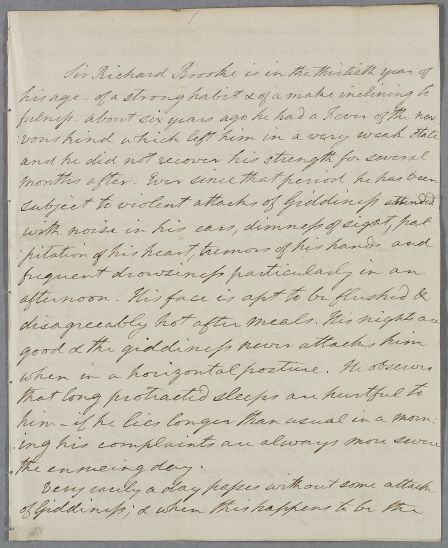 Sir Richard Brooke is in the thirtieth year of
his age - of a strong habit & of a make inclining to
fulness. about six years ago he had a Fever of the ner
vous kind which left him in a very weak State
and he did not recover his strength for several
months after. Ever since that period he has been
subject to violent attacks of Giddiness attended
with noise in his ears, dimness of sight, pal
pitation of his heart, tremors of his hands and
frequent drowsiness particularly in an
afternoon. His face is apt to be flushed &
disagreeably hot after meals. His nights are
good & the giddiness never attacks him
when in a horizontal posture. He observes
that long protracted sleeps are hurtful to
him - if he lies longer than usual in a morn
ing his complaints are always more severe
the ensueing day.
Very rarely a day passes without some attack
of Giddiness; & when this happens to be the